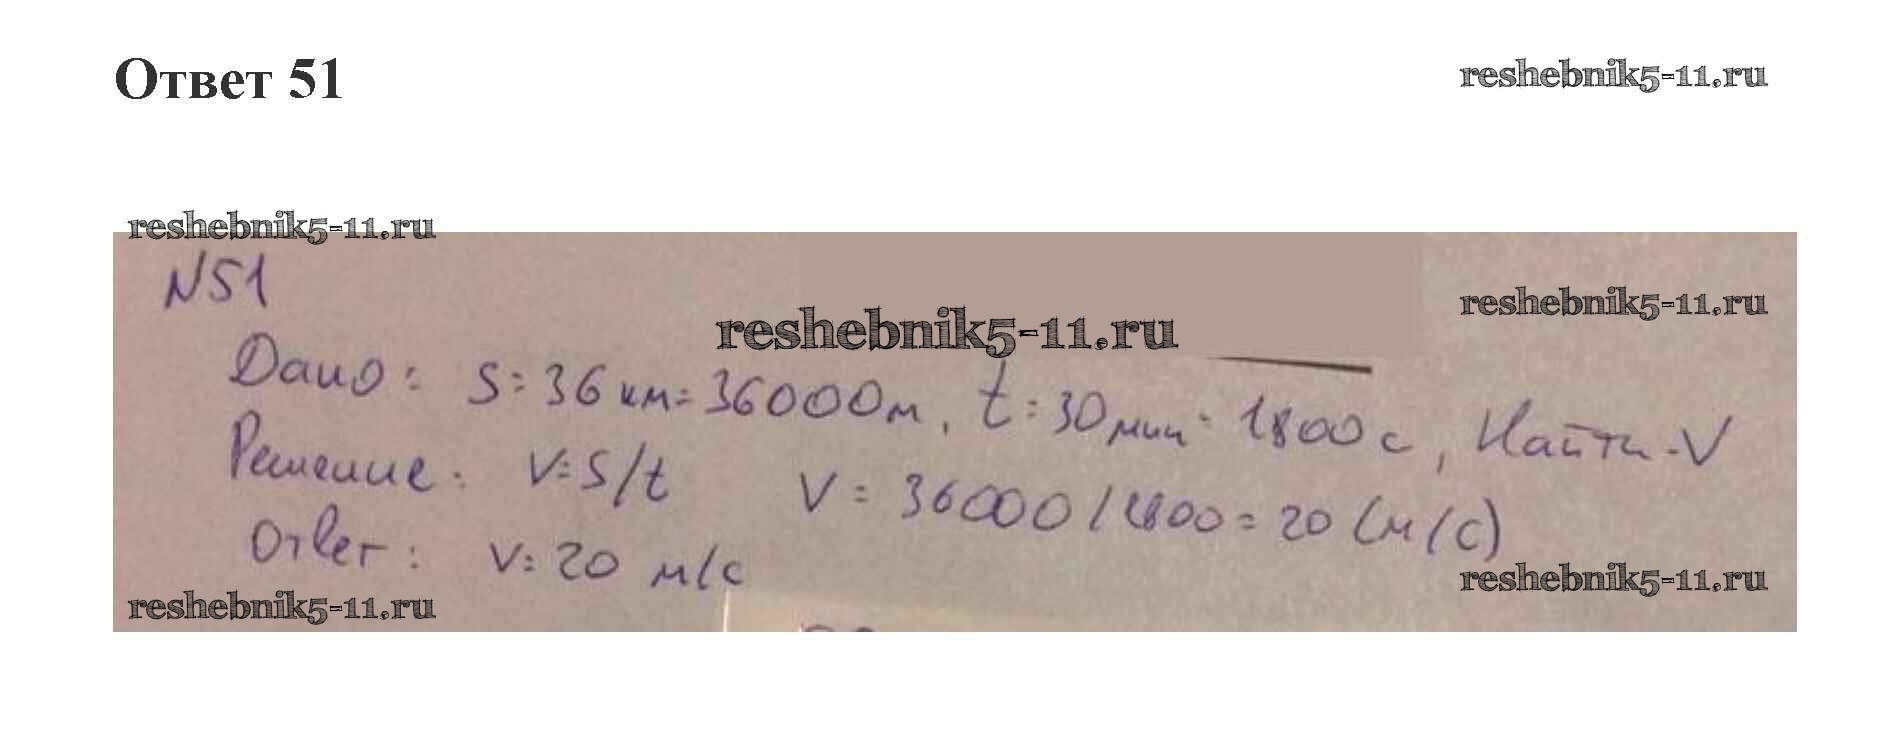 Ответ 51
reshebnik5-11.ru
reshebnik5-11.ru
N51
reshebnik5-11.ru
reshebnik5-11.ru
Дано: S=36 км=36000м, t=30мин=1800 с, Найти-V
Решение: V=S/t V = 36000/1800=20 (м/с)
Ответ: V=20 м/с
reshebnik5-11.ru
reshebnik5-11.ru